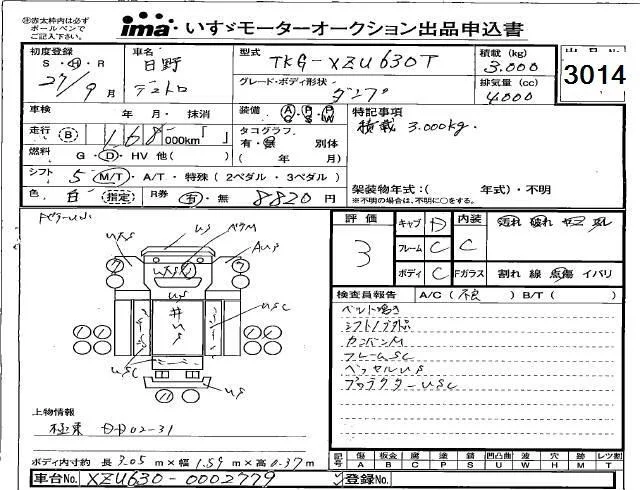 ※赤太枠内は必ず
ボールペンで
ご記入下さい。
ima いすゞモーターオークション出品申込書
初度登録
S・H・R
27/9月
車名
日野
デュトロ
型式
TKG-XZU630T
グレード・ボディ形状
ダンプ
積載 (kg)
3.000
排気量 (cc)
4.000
出品No.
3014
車検
年 月・ 抹消
走行 B 168 000km「 」
燃料
G・D・HV 他( )
シフト
5 M/T・A/T・特殊 (2ペダル・3ペダル)
色 白 指定 R券 有・無 8820 円
装備
A P P
G S W
タコグラフ
有・無 別体
( 年 月)
特記事項
積載 3.000kg.
架装物年式:( 年式)・不明
※不明の場合は、不明に○をする。
US
UKS
AUS
UKS
US
井
US
USC
USC
US
上物情報
極東 DD02-31
ボディ内寸約 長 3.05 m×幅 1.59 m×高 0.37 m
車台No. XZU630-0002779
評価
3
キャブ D
フレーム C
ボディ C
内装
C
汚れ 破れ
Fガラス 割れ 線 点傷 イバリ
検査員報告 A/C ( 不良 ) B/T ( )
ベルト鳴き
シフトノブ
カンバンM
フレームSC
ベッセルUS
プロテクターUSC
記号
傷 板金 腐 塗 錆 凹凸曲 波 穴 跡 レツ割
A B C P S U W H M T
登録No.